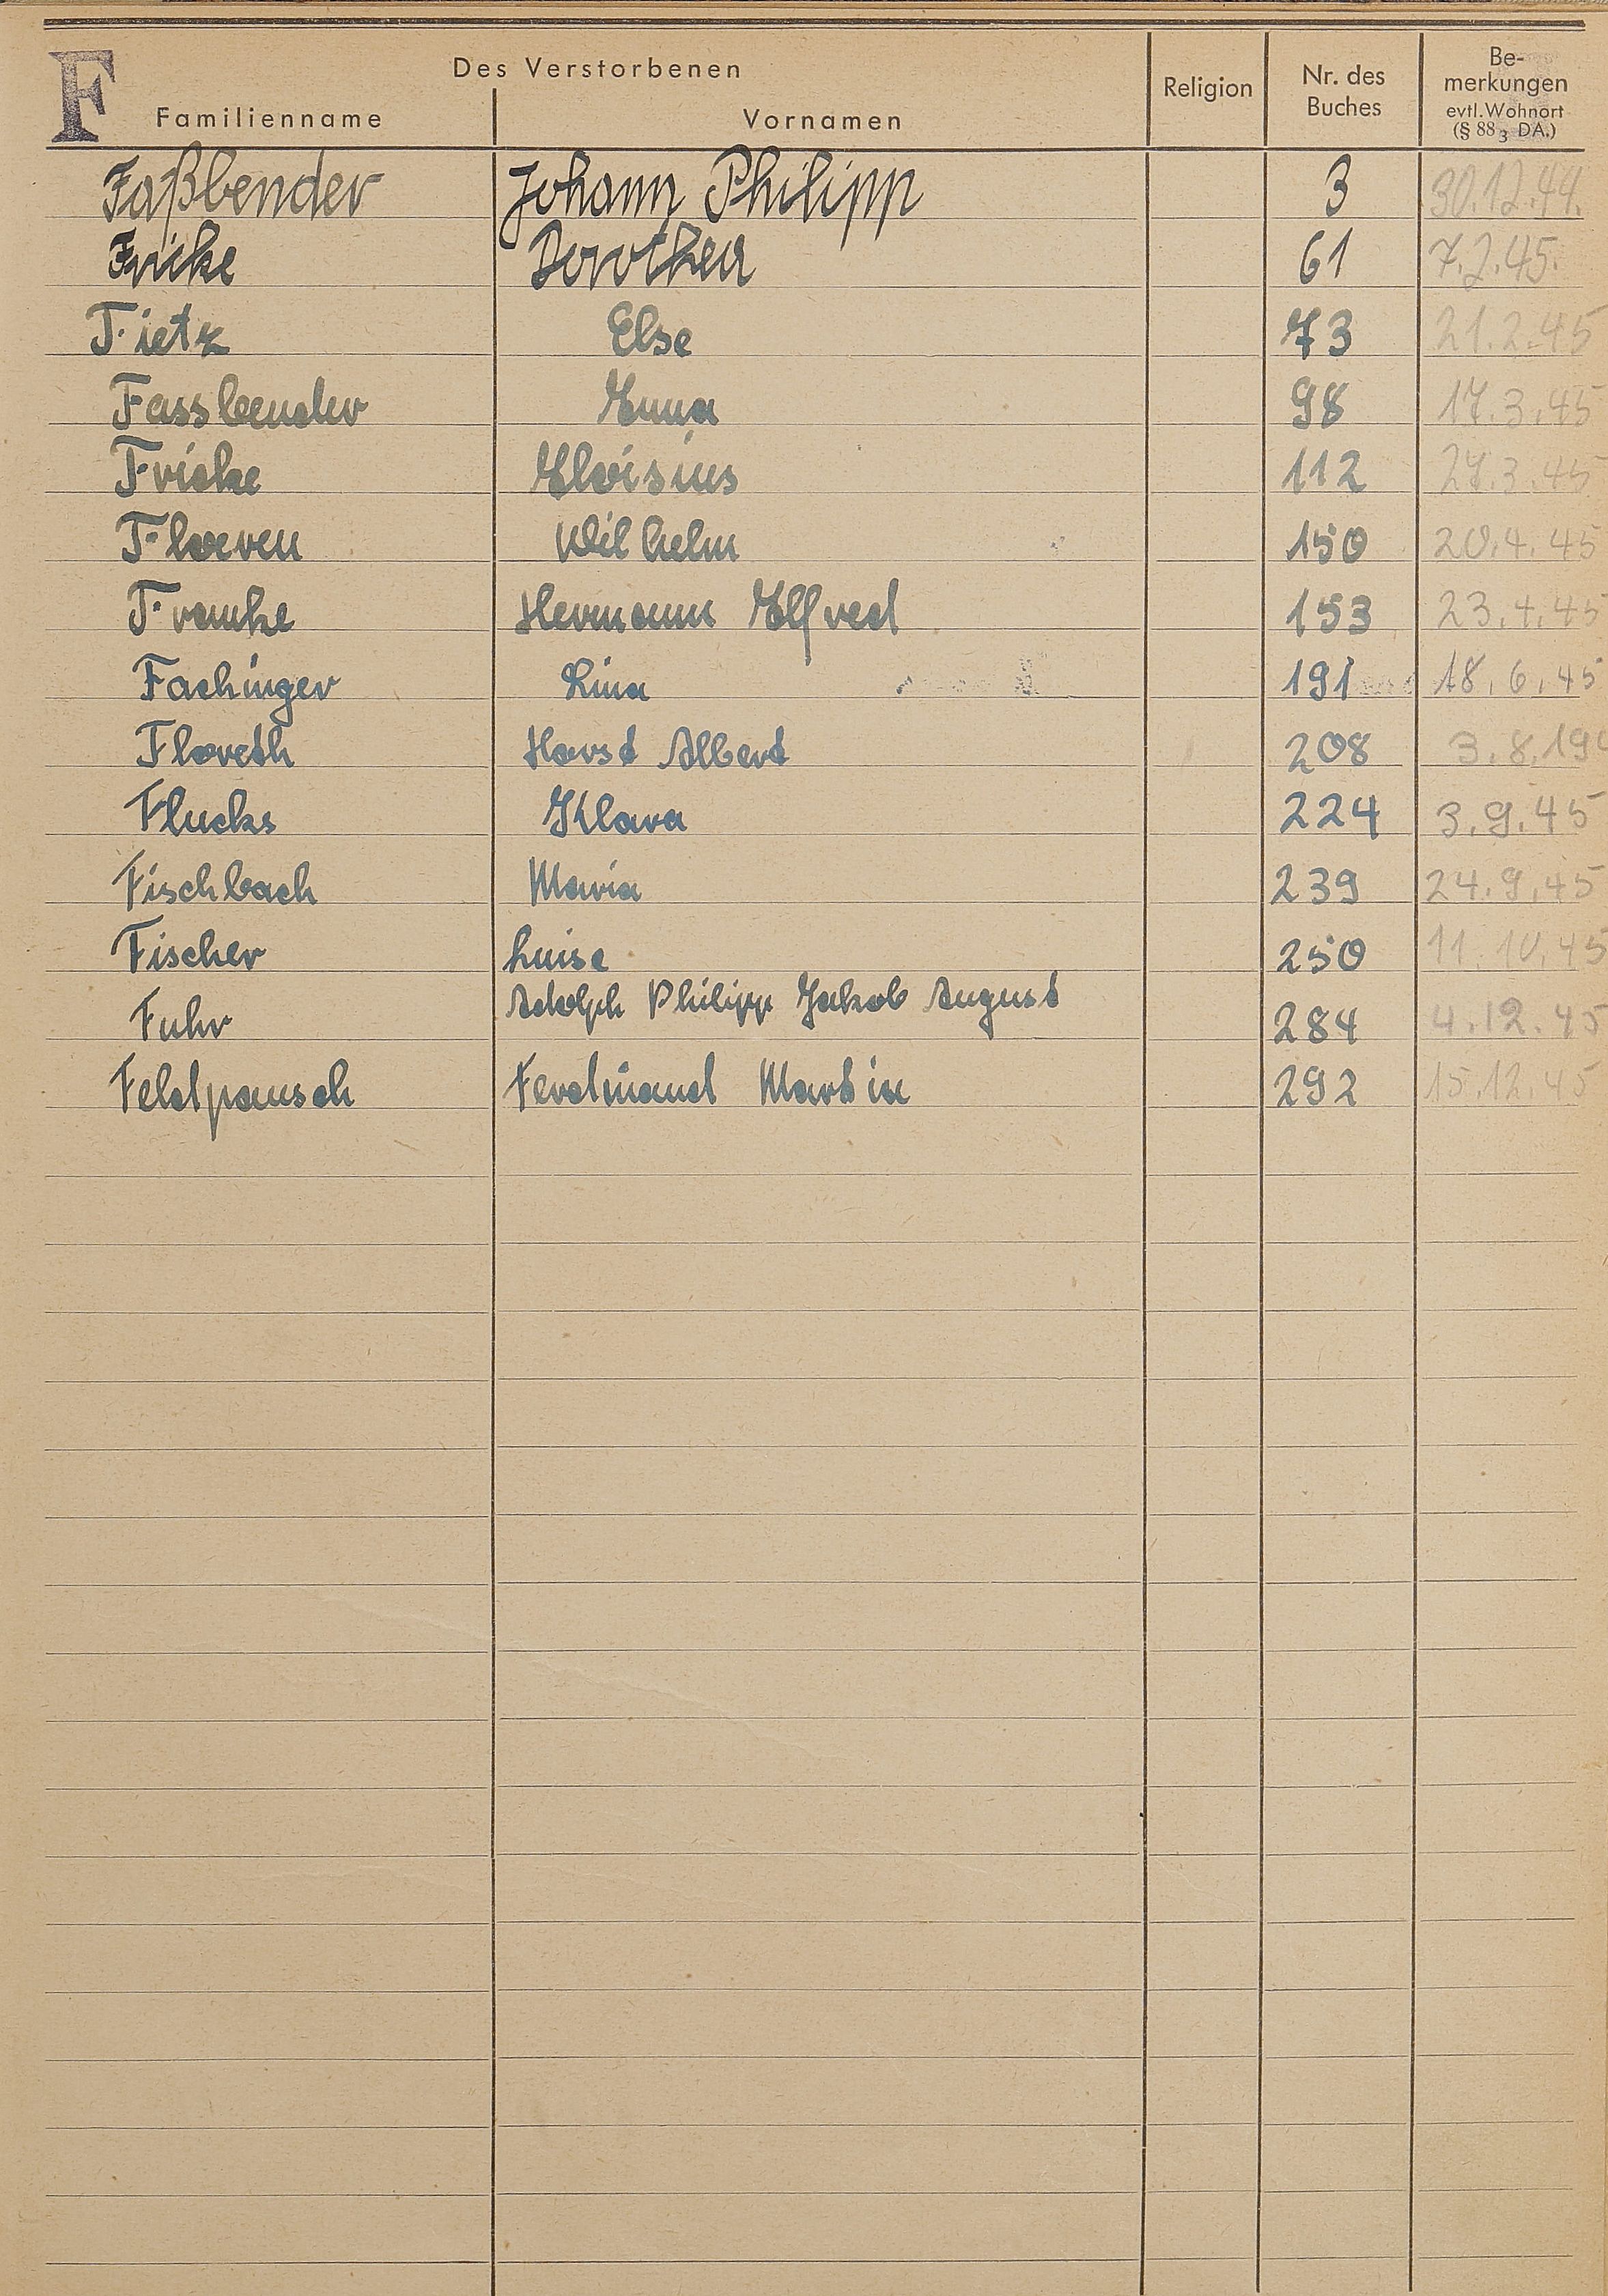 F
Des Verstorbenen
Familienname Vornamen Religion Nr. des Buches Be-merkungen evtl. Wohnort (§ 88 3 DA.)
Faßbender Johann Philipp 3 30.12.44.
Fricke Dorothea 61 7.2.45.
Fietz Else 73 21.2.45
Fassbender Anna 98 17.3.45
Fricke Aloisius 112 27.3.45
Floeren Wilhelm 150 20.4.45
Franke Hermann Alfred 153 23.4.45
Fachinger Lina 191 18.6.45
Floreth Horst Albert 208 3.8.19
Flucks Klara 224 3.9.45
Fischbach Maria 239 24.9.45
Fischer Luise 250 11.10.45
Fuhr Adolph Philipp Jakob August 284 4.12.45
Feldpausch Ferdinand Martin 292 15.12.45